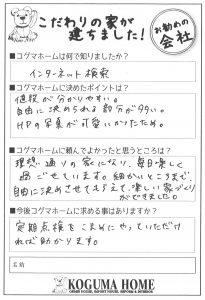 こだわりの家が
建ちました!
お勧めの
会社
■コグマホームは何で知りましたか?
インターネット検索
■コグマホームに決めたポイントは?
値段が分かりやすい。
自由に決められる部分が多い。
HPの写真が可愛いかったため。
■コグマホームに頼んでよかったと思うところは?
理想通りの家になり、毎日楽しく
過ごせています。細かいところまで、
自由に決めさせてもらえて、楽しい家づくり
ができました。
■今後コグマホームに求める事はありますか?
定期点検をこまめにやっていただけ
れば助かります。
名前
KOGUMA HOME